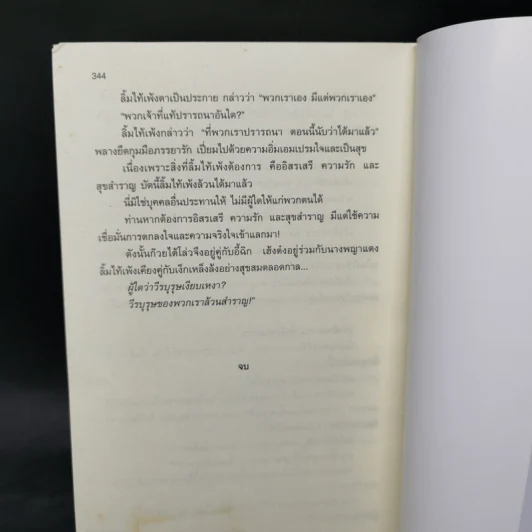 344
ลิ้มไท้เพ้งตาเป็นประกาย กล่าวว่า "พวกเราเอง มีแต่พวกเราเอง"
"พวกเจ้าที่แท้ปรารถนาอันใด?"
ลิ้มไท้เพ้งกล่าวว่า "ที่พวกเราปรารถนา ตอนนี้นับว่าได้มาแล้ว"
พลางยึดกุมมือภรรยารัก เปี่ยมไปด้วยความอิ่มเอมเปรมใจและเป็นสุข
เนื่องเพราะสิ่งที่ลิ้มไท้เพ้งต้องการ คืออิสรเสรี ความรัก และ
สุขสำราญ บัดนี้ลิ้มไท้เพ้งล้วนได้มาแล้ว
นี่มิใช่บุคคลอื่นประทานให้ ไม่มีผู้ใดให้แก่พวกตนได้
ท่านหากต้องการอิสรเสรี ความรัก และสุขสำราญ มีแต่ใช้ความ
เชื่อมั่นการตกลงใจและความจริงใจเข้าแลกมา!
ดังนั้นก๊วยได้โล่วจึงอยู่คู่กับอี้ฉิก เฮ้งต๋งอยู่ร่วมกับนางพญาแดง
ลิ้มไท้เพ้งเคียงคู่กับเง็กเหล็งล้งอย่างสุขสมตลอดกาล...
ผู้ใดว่าวีรบุรุษเงียบเหงา?
วีรบุรุษของพวกเราล้วนสำราญ!"
จบ